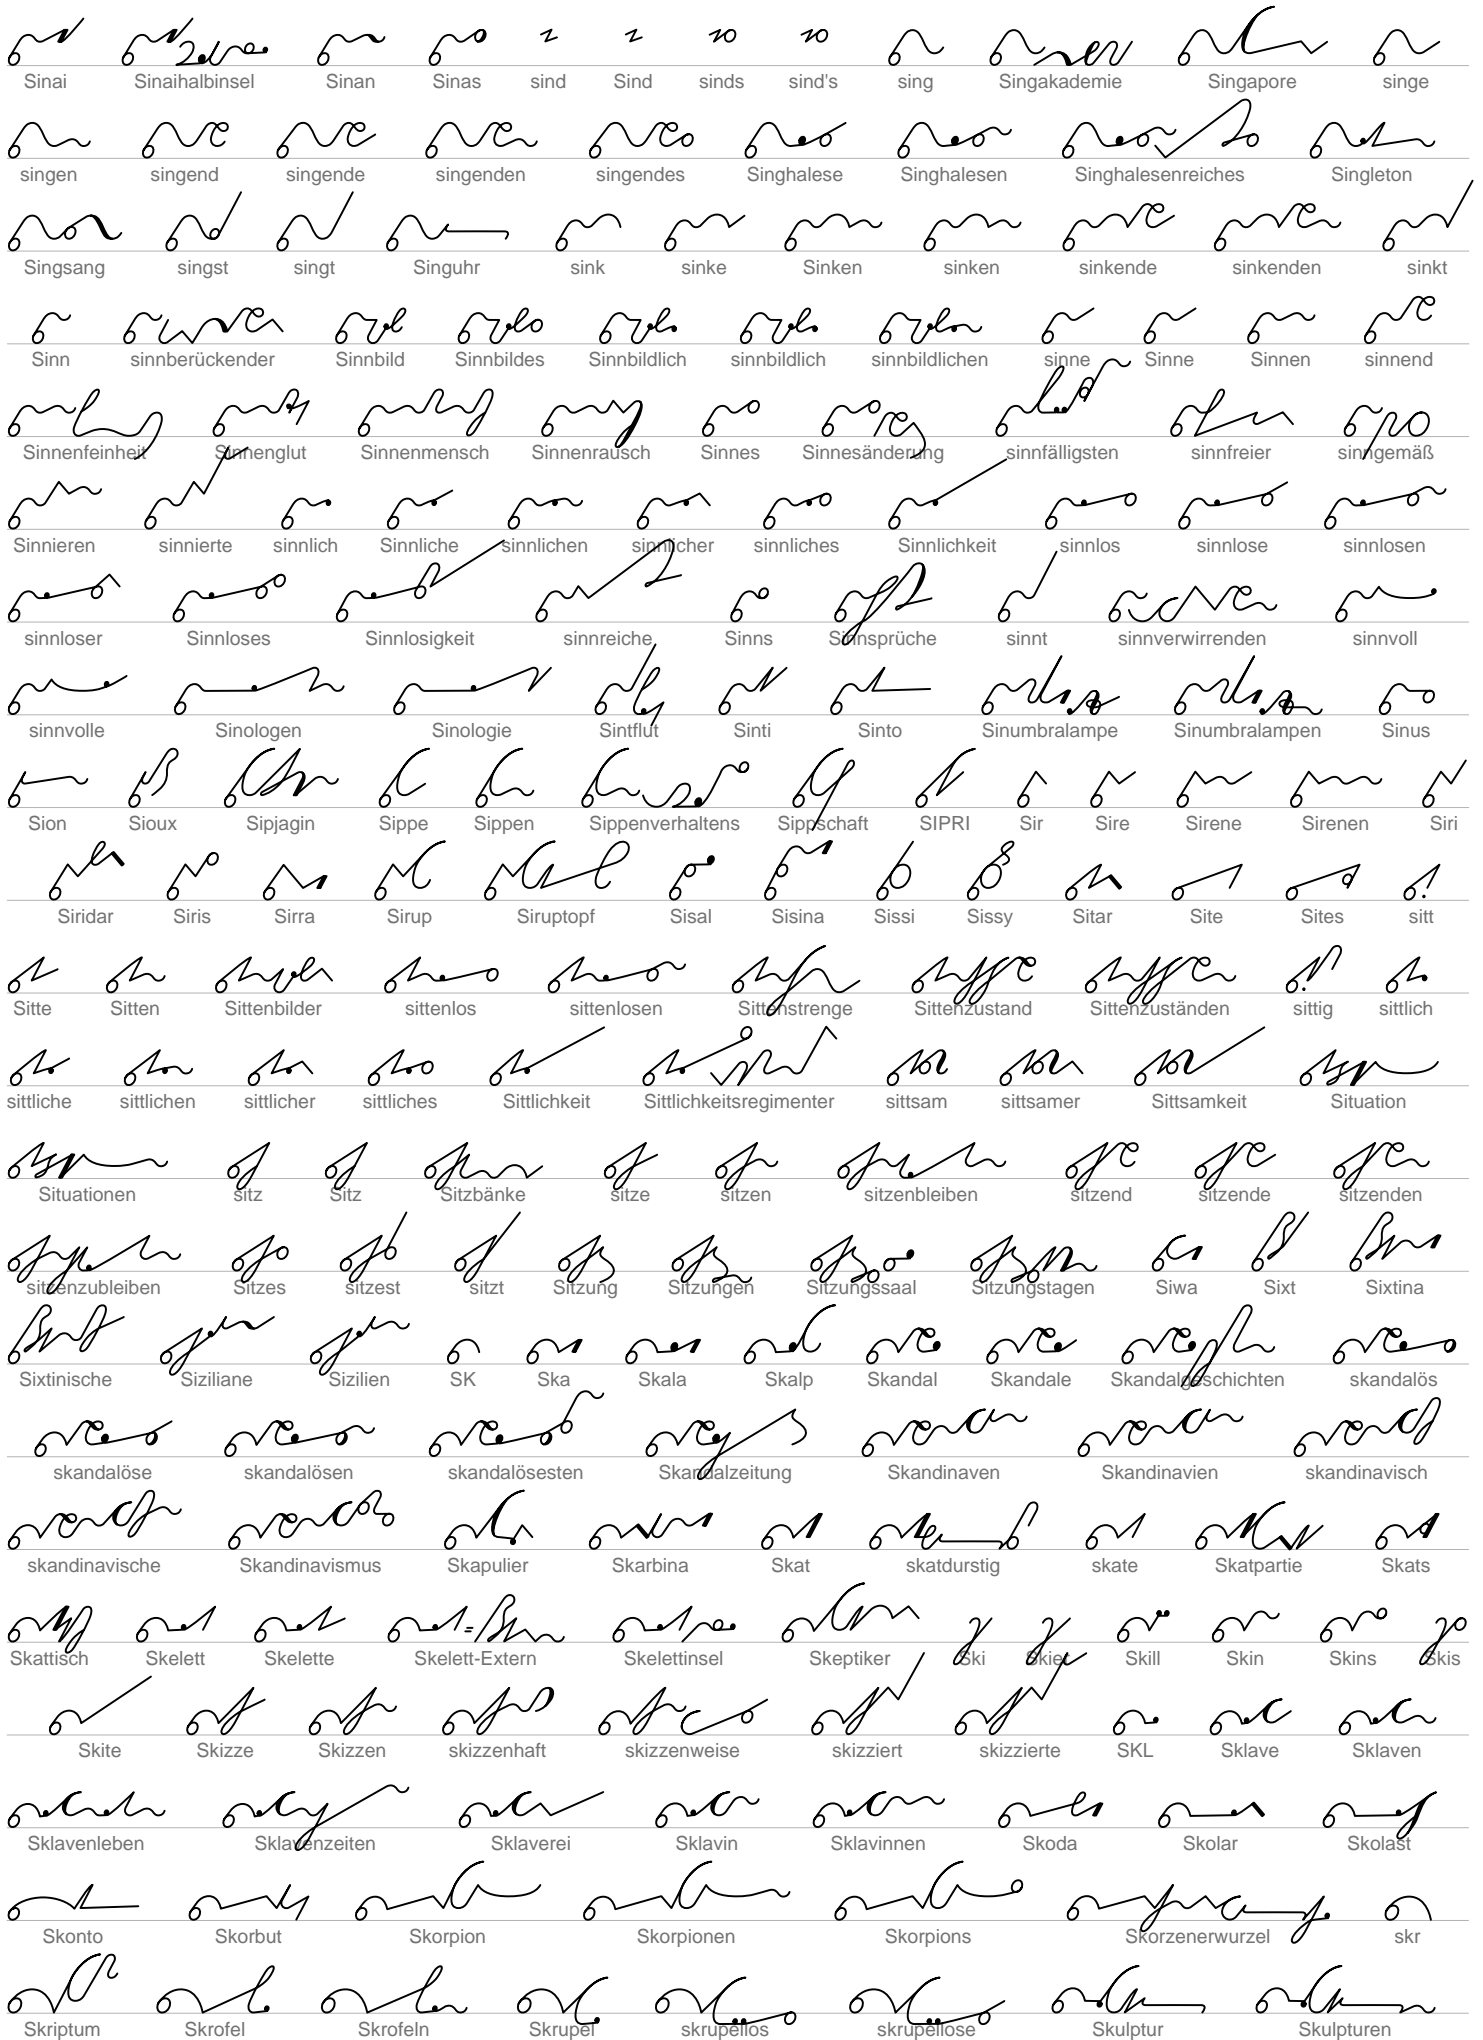 Sinai Sinaihalbinsel Sinan Sinas sind Sind sinds sind's sing Singakademie Singapore singe
singen singend singende singenden singendes Singhalese Singhalesen Singhalesenreiches Singleton
Singsang singst singt Singuhr sink sinke Sinken sinken sinkende sinkenden sinkt
Sinn sinnberückender Sinnbild Sinnbildes Sinnbildlich sinnbildlich sinnbildlichen sinne Sinne Sinnen sinnend
Sinnenfeinheit Sinnenglut Sinnenmensch Sinnenrausch Sinnes Sinnesänderung sinnfälligsten sinnfreier sinngemäß
Sinnieren sinnierte sinnlich Sinnliche sinnlichen sinnlicher sinnliches Sinnlichkeit sinnlos sinnlose sinnlosen
sinnloser Sinnloses Sinnlosigkeit sinnreiche Sinns Sinnsprüche sinnt sinnverwirrenden sinnvoll
sinnvolle Sinologen Sinologie Sintflut Sinti Sinto Sinumbralampe Sinumbralampen Sinus
Sion Sioux Sipjagin Sippe Sippen Sippenverhaltens Sippschaft SIPRI Sir Sire Sirene Sirenen Siri
Siridar Siris Sirra Sirup Siruptopf Sisal Sisina Sissi Sissy Sitar Site Sites sitt
Sitte Sitten Sittenbilder sittenlos sittenlosen Sittenstrenge Sittenzustand Sittenzuständen sittig sittlich
sittliche sittlichen sittlicher sittliches Sittlichkeit Sittlichkeitsregimenter sittsam sittsamer Sittsamkeit Situation
Situationen sitz Sitz Sitzbänke sitze sitzen sitzenbleiben sitzend sitzende sitzenden
sitzenzubleiben Sitzes sitzest sitzt Sitzung Sitzungen Sitzungssaal Sitzungstagen Siwa Sixt Sixtina
Sixtinische Siziliane Sizilien SK Ska Skala Skalp Skandal Skandale Skandalgeschichten skandalös
skandalöse skandalösen skandalösesten Skandalzeitung Skandinaven Skandinavien skandinavisch
skandinavische Skandinavismus Skapulier Skarbina Skat skatdurstig skate Skatpartie Skats
Skattisch Skelett Skelette Skelett-Extern Skelettinsel Skeptiker Ski Skier Skill Skin Skins Skis
Skite Skizze Skizzen skizzenhaft skizzenweise skizziert skizzierte SKL Sklave Sklaven
Sklavenleben Sklavenzeiten Sklaverei Sklavin Sklavinnen Skoda Skolar Skolast
Skonto Skorbut Skorpion Skorpionen Skorpions Skorzenerwurzel skr
Skriptum Skrofel Skrofeln Skrupel skrupellos skrupellose Skulptur Skulpturen